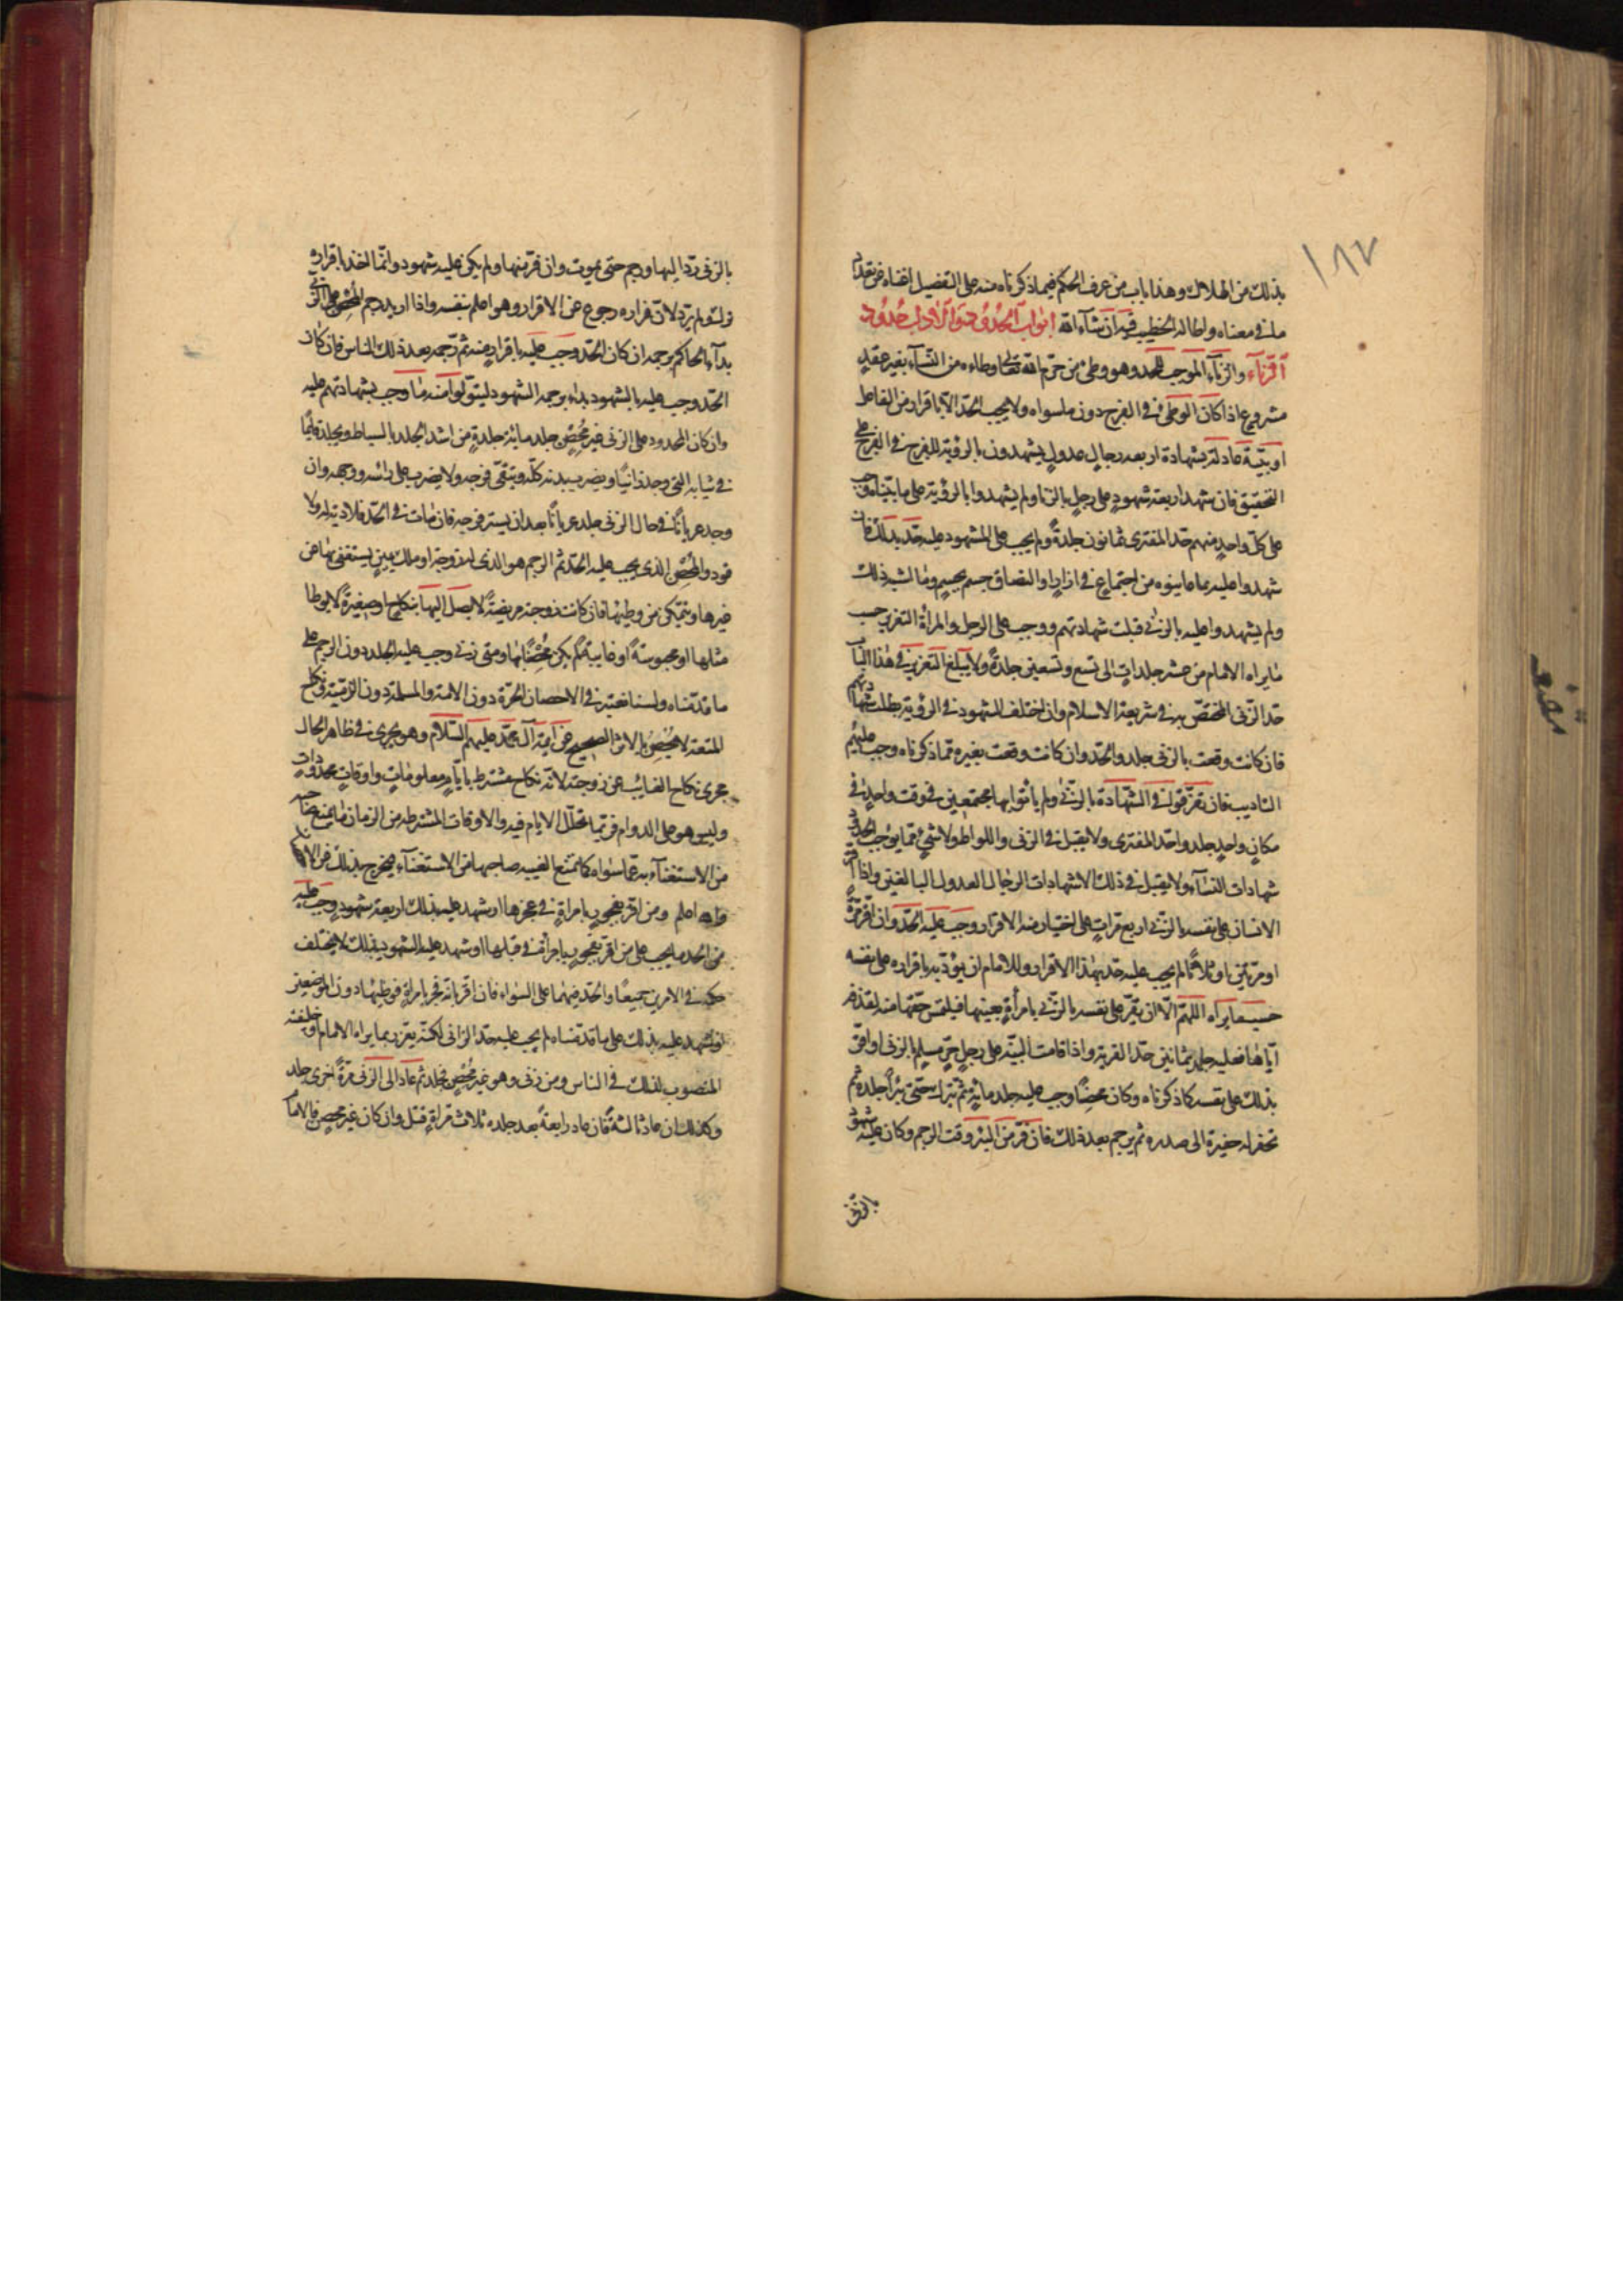 ١٨٧
بذلك من الهلاك وهذا باب من عرف الحكم فيما ذكرناه منه على التفصيل اغناه عن تعداد
ما في معناه واطاله الخطب فيه ان شآء الله ابواب الحدود والآداب حدود
الزنآء والزنآء الموجب للحد وهو وطئ من حرم الله تعالى وطاءه من النسآء بغير عقد
مشروع اذا كان الوطئ في الفرج دون ما سواه ولا يجب الحد الا باقرار من الفاعل
او بينة عادلة بشهادة اربعه رجال عدول يشهدون بالرؤية للفرج في الفرج على
التحقيق فان شهد اربعة شهود على رجل بالزنا ولم يشهدوا بالرؤية على ما بيناه وجب
على كل واحد منهم حد المفترى ثمانون جلدة ولم يجب على المشهود عليه حد بذلك فان
شهدوا عليه بما عاينوه من اجتماع في ازار او التصاق جسم بجسم وما اشبه ذلك
ولم يشهدوا عليه بالزنى قبلت شهادتهم ووجب على الرجل والمرأة التعزير حسب
ما يراه الامام من عشر جلدات الى تسع وتسعين جلدة ولا يبلغ التعزير في هذا الباب
حد الزنى المختص به في شريعة الاسلام وان اختلف الشهود في الرؤية بطلت شهادتهم
فان كانت وقعت بالزنى جلدوا الحد وان كانت وقعت بغيره مما ذكرناه وجب عليهم
التاديب فان تفرقوا في الشهادة بالزنى ولم ياتوا بها مجتمعين في وقت واحد في
مكان واحد جلدوا حد المفترى ولا يقبل في الزنى واللواط ولا شئ مما يوجب الحدود
شهادات النسآء ولا يقبل في ذلك الا شهادات الرجال العدول البالغين واذا اقر
الانسان على نفسه بالزنى اربع مرات على اختيار منه الاقرار وجب عليه الحد وان اقر مرة
او مرتين او ثلاثا لم يجب عليه حد بهذا الاقرار وللامام ان يؤدبه باقراره على نفسه
حسبما يراه اللهم الا ان يقر على نفسه بالزنى بامرأة بعينها فيلتمس حقها منه لقذفه
اياها فعليه جلد ثمانين حد الفرية واذا قامت البينه على رجل حر مسلم بالزنى او اقر
بذلك على نفسه كما ذكرناه وكان محصنا وجب عليه جلد مائة ثم ترك حتى يبرأ جلده ثم
تحفر له حفيرة الى صدره ثم يرجم بعد ذلك فان فر من البئر وقت الرجم وكان عليه شهود
بالزنى
بالزنى رد اليها ورجم حتى يموت وان فر منها ولم يكن عليه شهود وانما اخذ باقراره
ترك ولم يرد لان فراره رجوع عن الاقرار وهو اعلم بنفسه واذا اريد رجم المحصن على الزنى
بدأ الحاكم برجمه ان كان الحد وجب عليه باقرار منه ثم رجمه بعد ذلك الناس فان كان
الحد وجب عليه بالشهود بداء برجمه الشهود ليتولوا منه ما وجب بشهادتهم عليه
وان كان المحدود على الزنى غير محصن جلد مائة جلدة من اشد الجلد بالسياط ويجلد قائما
في ثيابه التي وجد زانيا ويضرب بدنه كله ويتقى فرجه ولا يضرب على رأسه ووجهه وان
وجد عريانا في حال الزنى جلد عريانا بعد ان يستر فرجه فان مات في الحد فلا دية له ولا
قود والمحصن الذي يجب عليه الحد ثم الرجم هو الذى له زوجة او ملك يمين يستغنى بها عن
غيرها ويتمكن من وطيها فان كانت زوجته مريضة لا يصل اليها بنكاح او صغيرة لا يوطا
مثلها او محبوسة او غايبة لم يكن محصنا بها ومتى زنى وجب عليه الجلد دون الرجم على
ما قدمناه ولسنا نعتبر في الاحصان الحرة دون الامة والمسلمة دون الذمية ونكاح
المتعة لا يحصن بالاثر الصحيح عن آيمة آل محمد عليهم السلام وهو يجرى في ظاهر الحال
مجرى نكاح الغائب عن زوجته لانه نكاح مشترط بايام معلومات واوقات محدودات
وليس هو على الدوام فربما تخلل الايام فيه والاوقات المشترطه من الزمان ما يمنع صاحبه
من الاستغنآء به عما سواه كما تمنع الغيبه صاحبها من الاستغنآء فيخرج بذلك من الاحصان
والله اعلم ومن اقر بفجور بامراة في عجزها او شهد عليه بذلك اربعة شهود وجب عليه
من الحد ما يجب على من اقر بفجور بامرأة في قبلها او شهد عليه الشهود بذلك لا يختلف
حكمه في الامرين جميعا والحد فيهما على السواء فان اقر بانه فجر بامراة فوطيها دون الموضعين
او شهد عليه بذلك على ما قدمناه لم يجب عليه حد الزانى لكنه يعزر بما يراه الامام او خليفته
المنصوب لذلك في الناس ومن زنى وهو غير محصن فجلد ثم عاد الى الزنى مرة اخرى جلد
وكذلك ان عاد ثالثة فان عاد رابعة بعد جلده ثلاث مرات قتل وان كان غير محصن فالامام